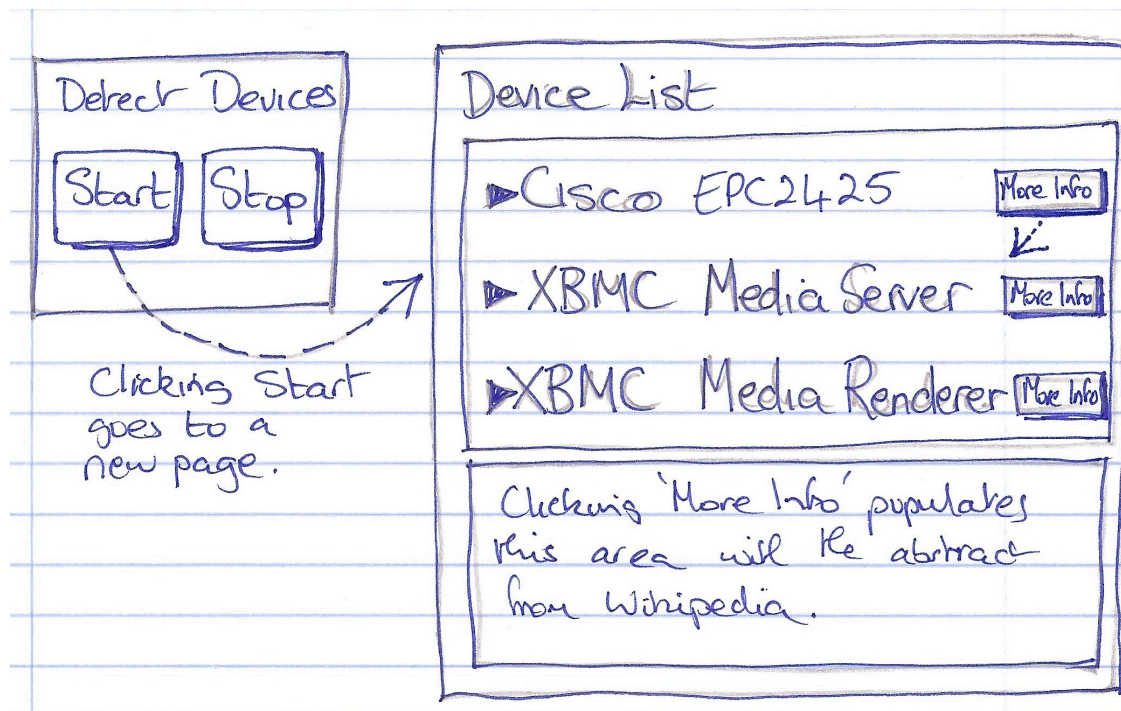 Detect Devices
Start
Stop
Clicking Start
goes to a
new page.
Device List
Cisco EPC2425
More Info
XBMC Media Server
More Info
XBMC Media Renderer
More Info
Clicking 'More Info' populates
this area with the abstract
from Wikipedia.